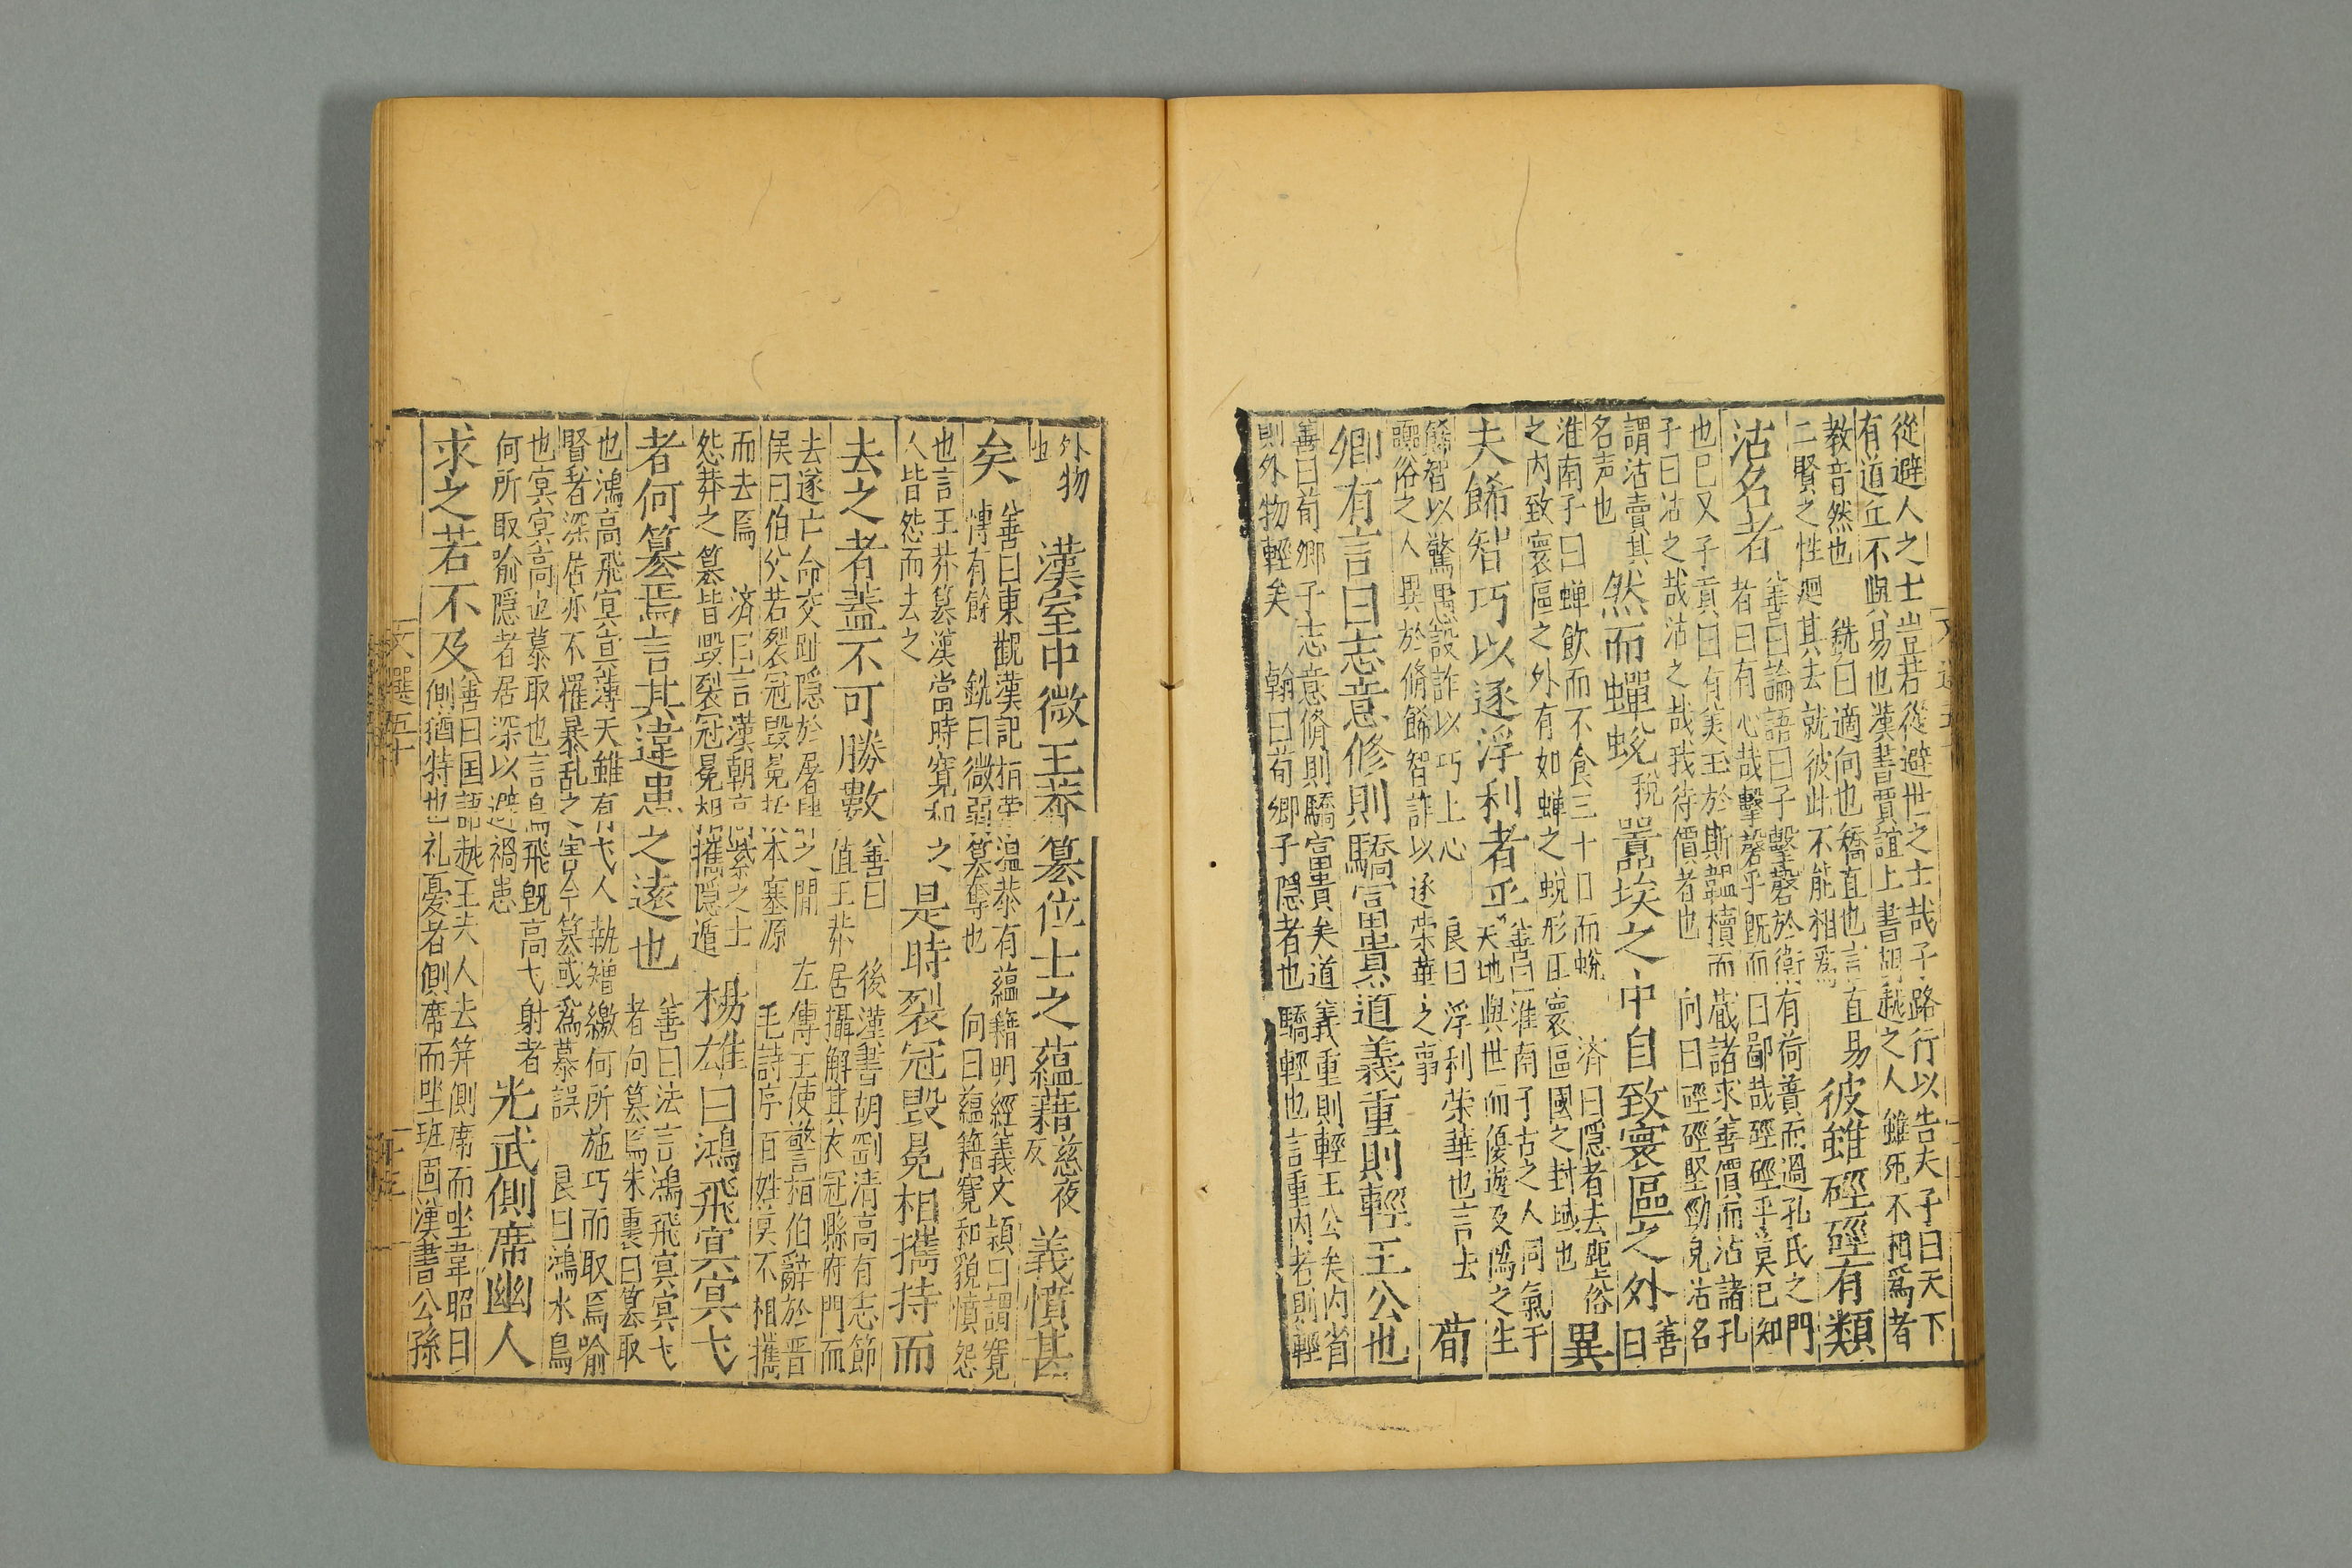 從避人之士豈若從避世之士哉子路行以告夫子曰天下
有道丘不與易也漢書賈誼上書曰胡越之人雖死不相爲者
教音然也　銑曰適向也矯直也言直易
二賢之性迴其去就彼此不能相爲
彼雖硜硜有類
沽名者
善曰論語曰子擊磬於衛有荷蕢而過孔氏之門
者曰有心哉擊磬乎既而曰鄙哉硜硜乎莫已知
也巳又子貢曰有美玉於斯韞櫝而藏諸求善價而沽諸孔
子曰沽之哉沽之哉我待價者也　向曰硜硜堅勁皃沽名
謂沽賣其
名声也
然而蟬蛻
稅
囂埃之中自致寰區之外
善
曰
淮南子曰蟬飲而不食三十日而蛻　濟曰隱者去離俗
之内致寰區之外有如蟬之蛻形正寰區國之封域也
異
夫餙智巧以逐浮利者乎
善曰淮南子古之人同氣于
天地與世而優遊及僞之生
餙智以驚愚設詐以巧上心　良曰浮利榮華也言去
囂俗之人異於脩餙智詐以逐榮華之事
荀
卿有言曰志意修則驕富貴道義重則輕王公也
善曰荀卿子志意脩則驕富貴矣道義重則輕王公矣内省
則外物輕矣　翰曰荀卿子隱者也驕輕也言重内者則輕
外物
也
漢室中微王莽篡位士之蘊藉
慈夜
反
義憤甚
矣
善曰東觀漢記桓榮溫恭有蘊籍明經義文穎曰謂寬
愽有餘　銑曰微弱篡奪也　向曰蘊籍寬和貌憤怨
也言王莽篡漢當時寬和之
人皆怨而去之
是時裂冠毀冕相攜持而
去之者蓋不可勝數
善曰　後漢書胡剛清高有志節
值王莽居攝解其衣冠縣府門而
去遂亡命交趾隱於屠肆之間　左傳王使詹桓伯辭於晉
侯曰伯父若裂冠毀冕拔本塞源　毛詩序百姓莫不相攜
而去焉　濟曰言漢朝貴紫之士
怨莽之篡皆毀裂冠冕相攜隱遁
楊雄曰鴻飛冥冥弋
者何篡焉言其違患之遠也
善曰法言鴻飛冥冥弋
者向篡焉朱衷曰篡取
也鴻高飛冥冥薄天雖有弋人執矰繳何所施巧而取焉喻
賢者深居亦不罹暴乱之害今篡或爲慕誤　良曰鴻水鳥
也冥冥高也慕取也言鳥飛旣高弋射者
何所取喻隱者居深以避禍患
光武側席幽人
求之若不及
善曰国語越王夫人去笄側席而坐韋昭曰
側猶特也礼憂者側席而坐班固漢書公孫
文選五十